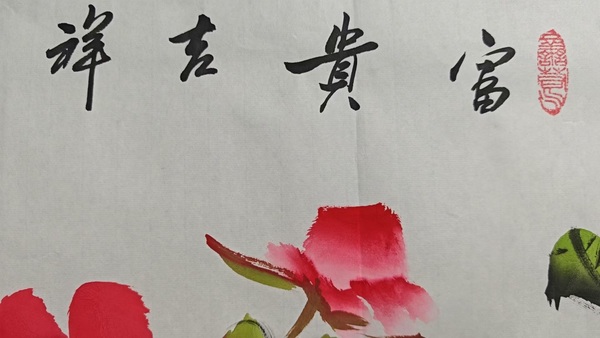 富貴吉祥